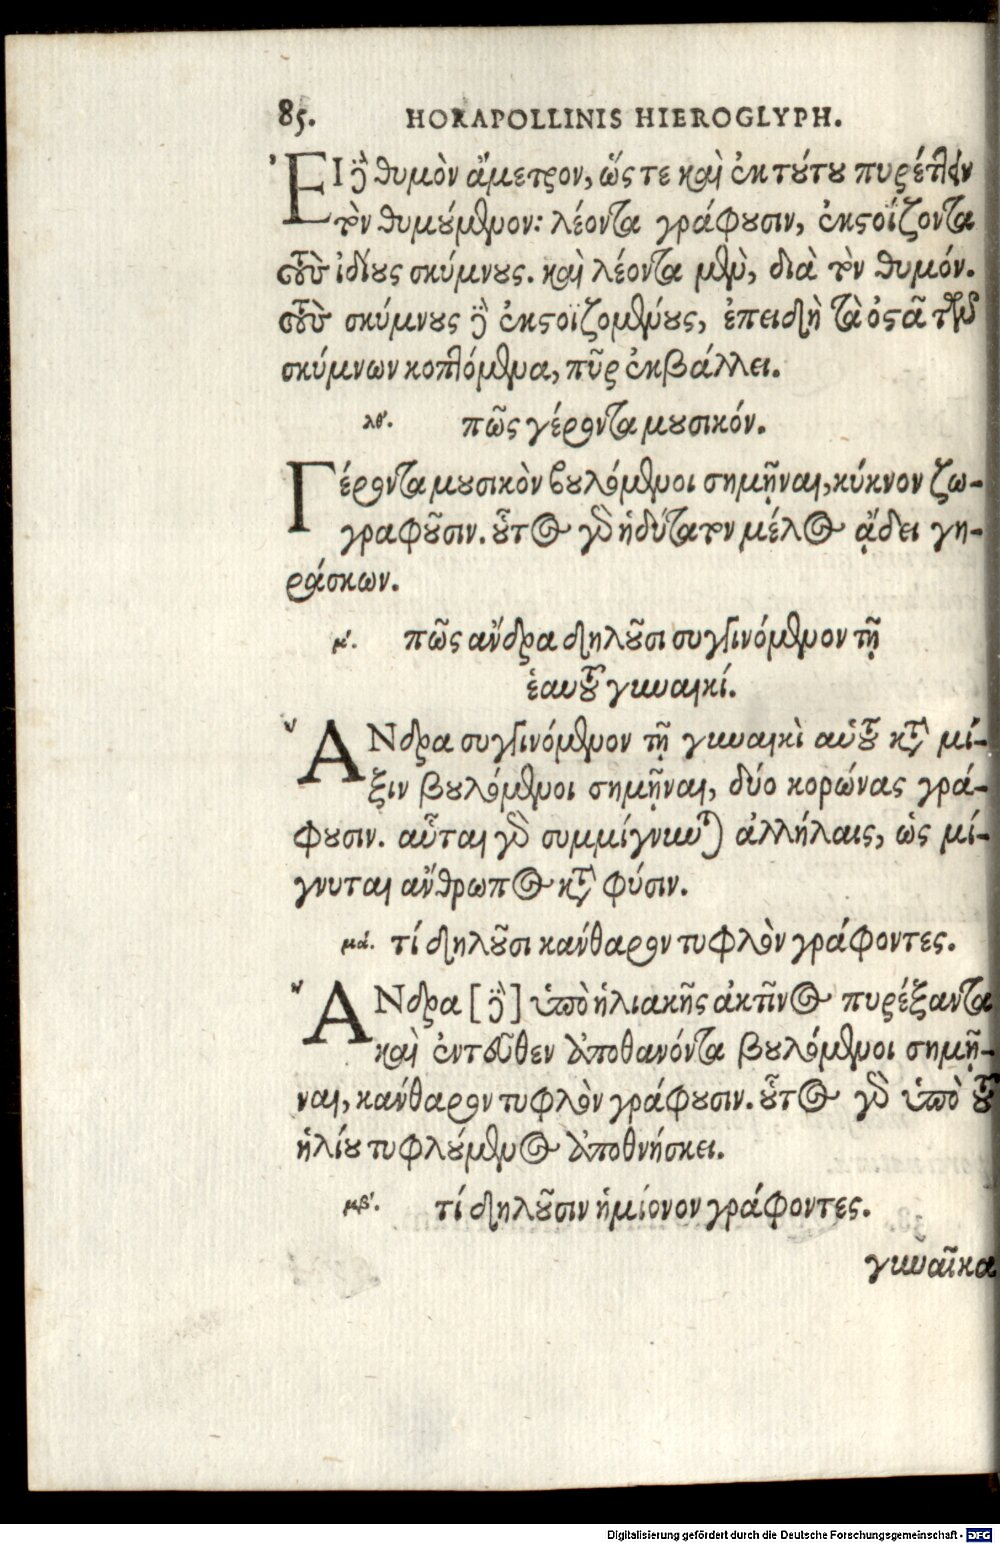 85. HORAPOLLINIS HIEROGLYPH.
ἘΙ δὲ θυμὸν ἄμετρον, ὥςτε καὶ ἐκ τούτου πυρέττειν
τὸν θυμούμενον: λέοντα γράφουσιν, ἐκστοΐζοντα
τοὺς ἰδίους σκύμνους. καὶ λέοντα μὲν, διὰ τὸν θυμόν.
τοὺς σκύμνους δὲ ἐκστοϊζομένους, ἐπειδὴ τὰ ὀστᾶ τῶν
σκύμνων κοπτόμενα, πῦρ ἐκβάλλει.
λθ. πῶς γέροντα μουσικόν.
Γέροντα μουσικὸν βουλόμενοι σημῆναι, κύκνον ζω-
γραφοῦσιν. οὗτος γὰρ ἡδύτατον μέλος ᾄδει γη-
ράσκων.
μ. πῶς ἄνδρα δηλοῦσι συγγινόμενον τῇ
ἑαυτοῦ γυναικί.
ἌΝδρα συγγινόμενον τῇ γυναικὶ αὑτοῦ κατὰ μί-
ξιν βουλόμενοι σημῆναι, δύο κορώνας γρά-
φουσιν. αὗται γὰρ συμμίγνυνται ἀλλήλαις, ὡς μί-
γνυται ἄνθρωπος κατὰ φύσιν.
μα. τί δηλοῦσι κάνθαρον τυφλὸν γράφοντες.
ἌΝδρα [δὲ] ὑπὸ ἡλιακῆς ἀκτῖνος πυρέξαντα
καὶ ἐντεῦθεν ἀποθανόντα βουλόμενοι σημῆ-
ναι, κάνθαρον τυφλὸν γράφουσιν. οὗτος γὰρ ὑπὸ τοῦ
ἡλίου τυφλούμενος ἀποθνήσκει.
μβ. τί δηλοῦσιν ἡμίονον γράφοντες.
γυναῖκα
Digitalisierung gefördert durch die Deutsche Forschungsgemeinschaft - DFG